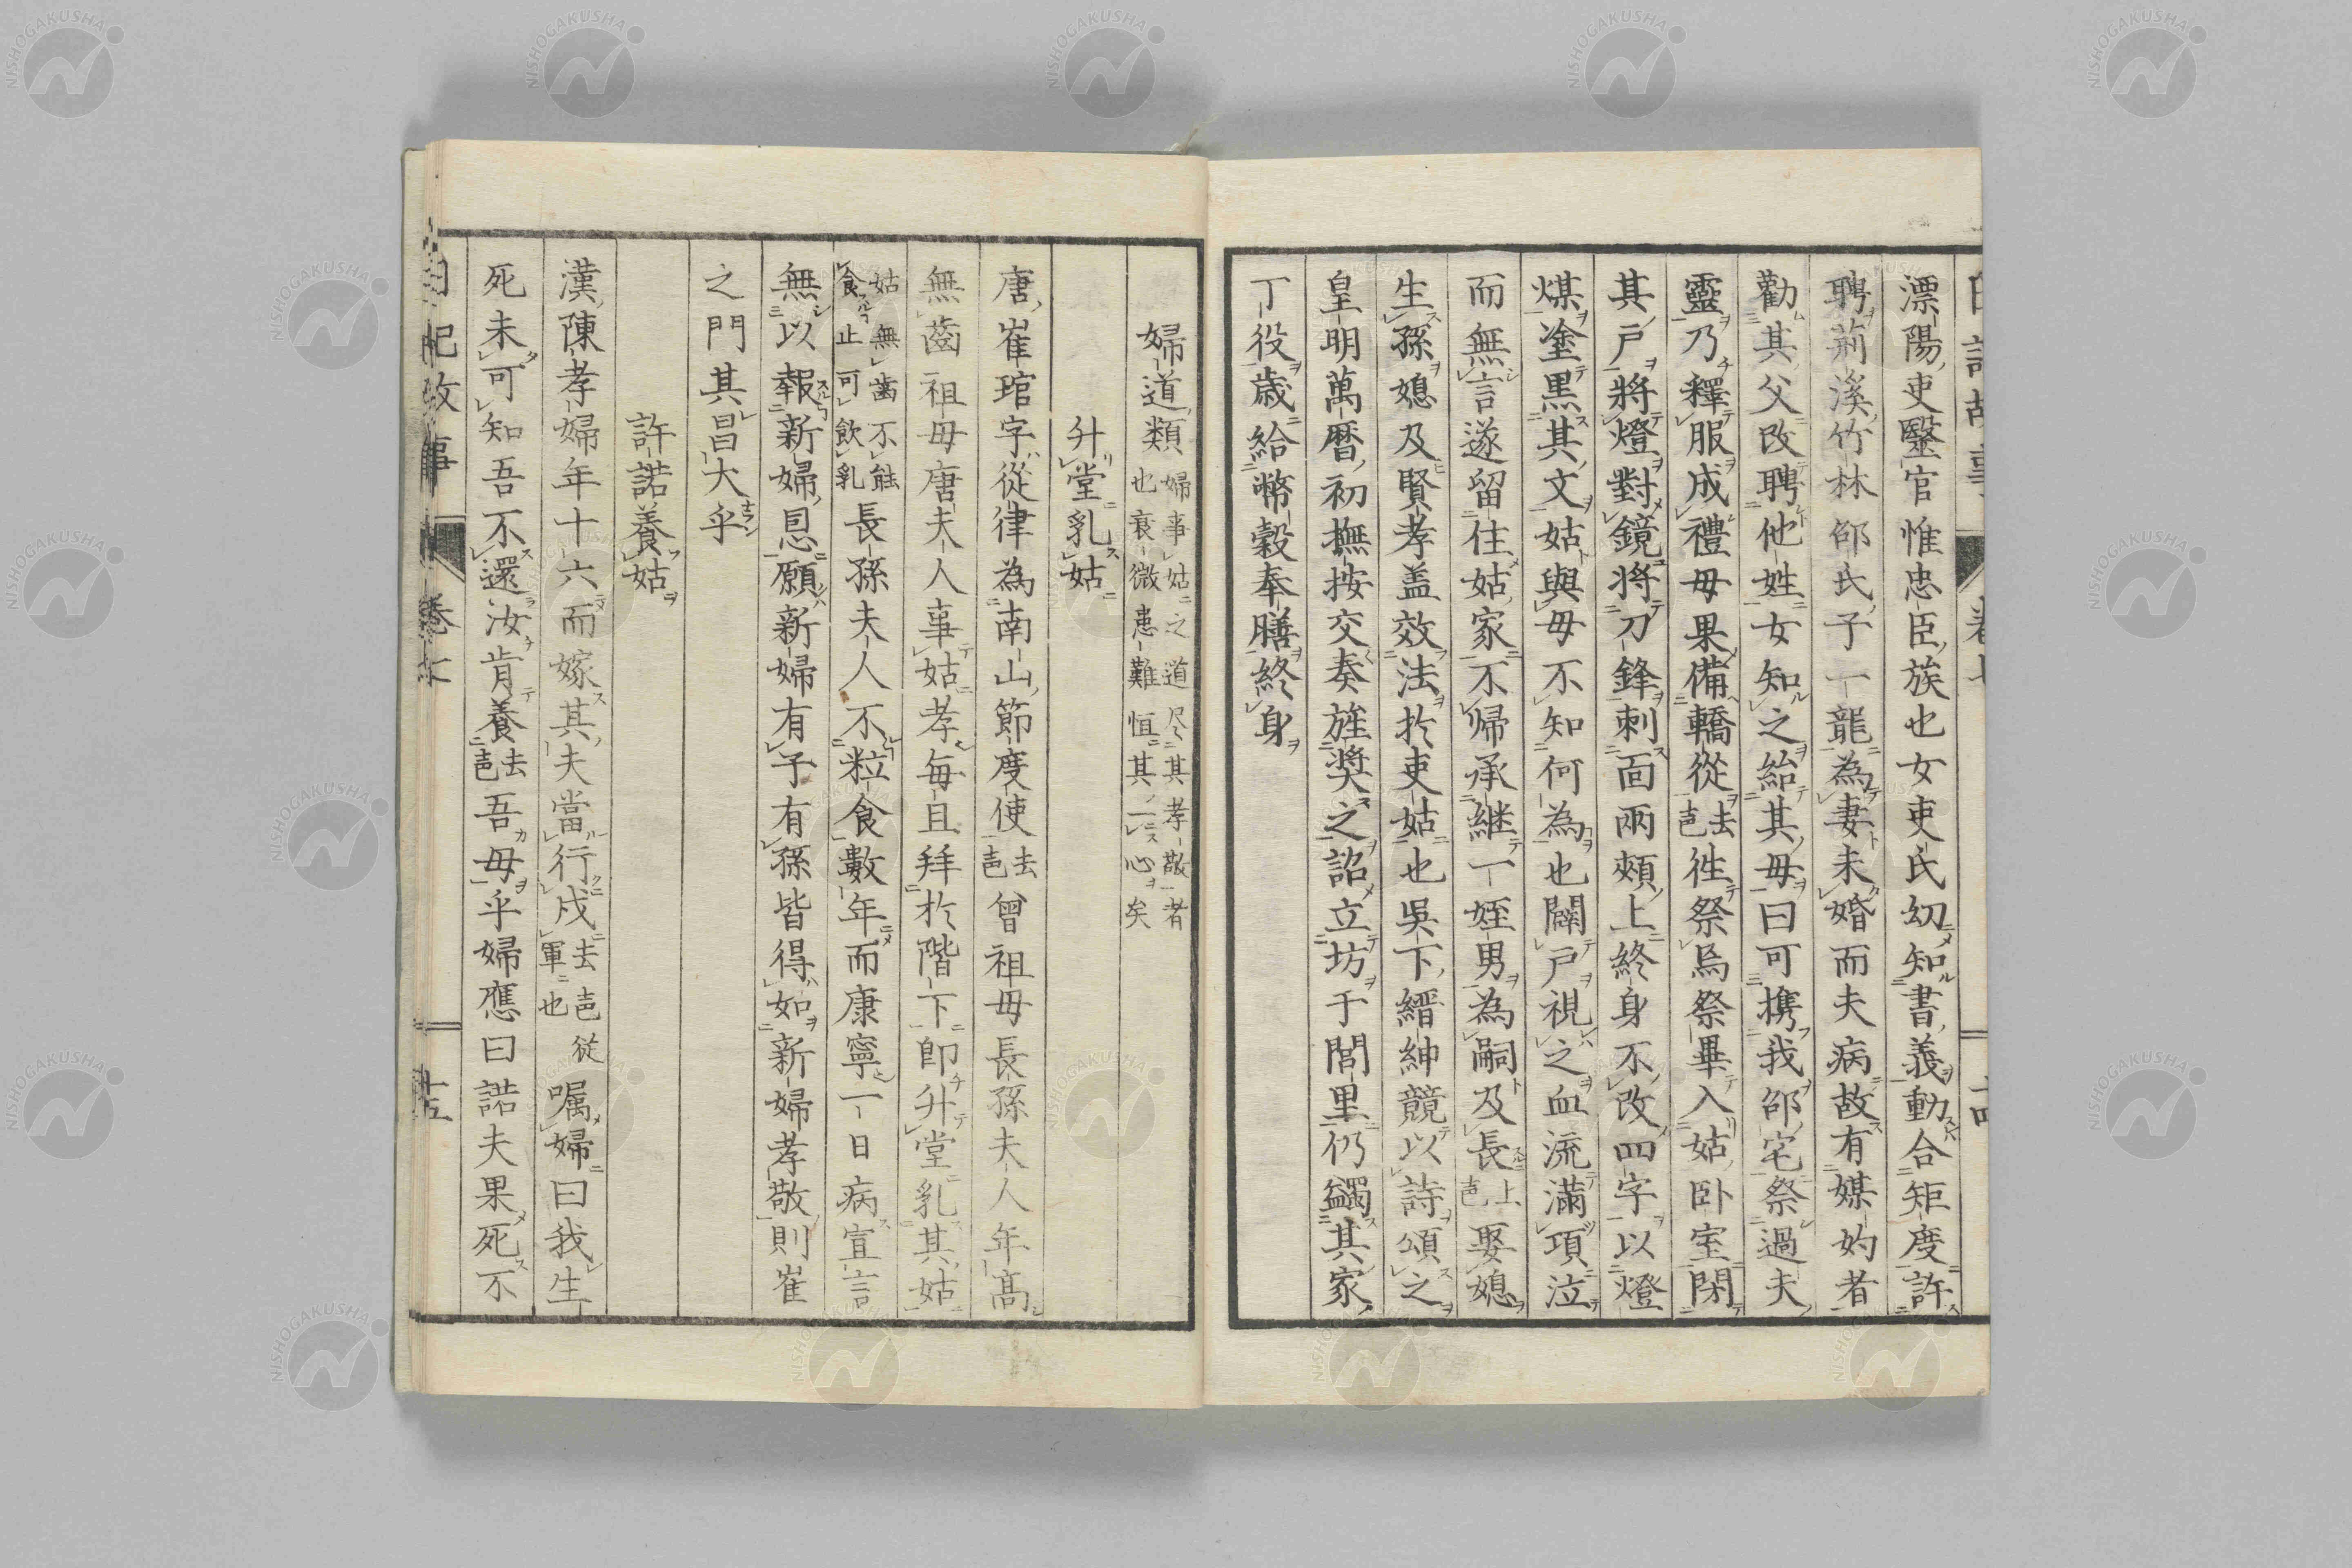 漂陽吏毉官惟忠臣族也女吏氏幼知書義動合矩度許
聘荊溪竹林邵氏子一龍為妻未婚而夫病故有媒妁者
勸其父改聘他姓女知之紿其母曰可携我邵宅祭過夫
靈乃釋服成禮母果備轎從去声徃祭焉祭畢入姑卧室閉
其戸將燈對鏡将刀鋒刺面兩頰上終身不改四字以燈
煤塗黒其文姑與母不知何為也闢戸視之血流滿項泣
而無言遂留住姑家不帰承継一姪男為嗣及長上声娶媳
生孫媳及賢孝盖效法扵吏姑也吳下縉紳競以詩頌之
皇明萬暦初撫按交奏旌奬之詔立坊于閭里仍蠲其家
丁役歳給幣穀奉膳終身
婦道類 婦事姑之道尽其孝敬者也衰微患難恒其一心矣
升堂乳姑
唐崔琯字從律為南山節度使去声曾祖母長孫夫人年髙
無齒祖母唐夫人事姑孝每且拜扵階下即升堂乳其姑
姑無歯不能食止可飲乳長孫夫人不粒食數年而康寧一日病宣言
無以報新婦恩願新婦有子有孫皆得如新婦孝敬則崔
之門其昌大乎
許諾養姑
漢陳孝婦年十六而嫁其夫當行戍去声從軍也嘱婦曰我生
死未可知吾不還汝肯養去声吾母乎婦應曰諾夫果死不
日記故事 巻七 十五